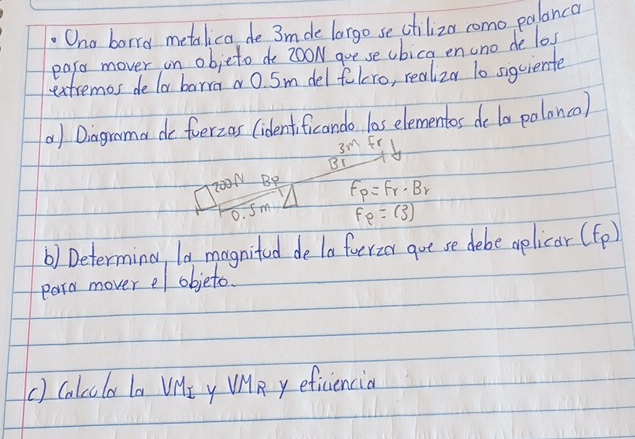 • Una barra metalica de 3m de largo se utiliza como palanca
para mover un objeto de 200N que se ubica en uno de los
extremos de la barra a 0.5m del fulcro, realiza lo siguiente
a) Diagrama de fuerzas (identificando los elementos de la palanca)
3m Fr
Br
200N Bp
0.5m
Fp = Fr · Br
Fp = (3)
b) Determina la magnitud de la fuerza que se debe aplicar (Fp)
para mover el objeto.
c) Calcula la VMI y VMR y eficiencia